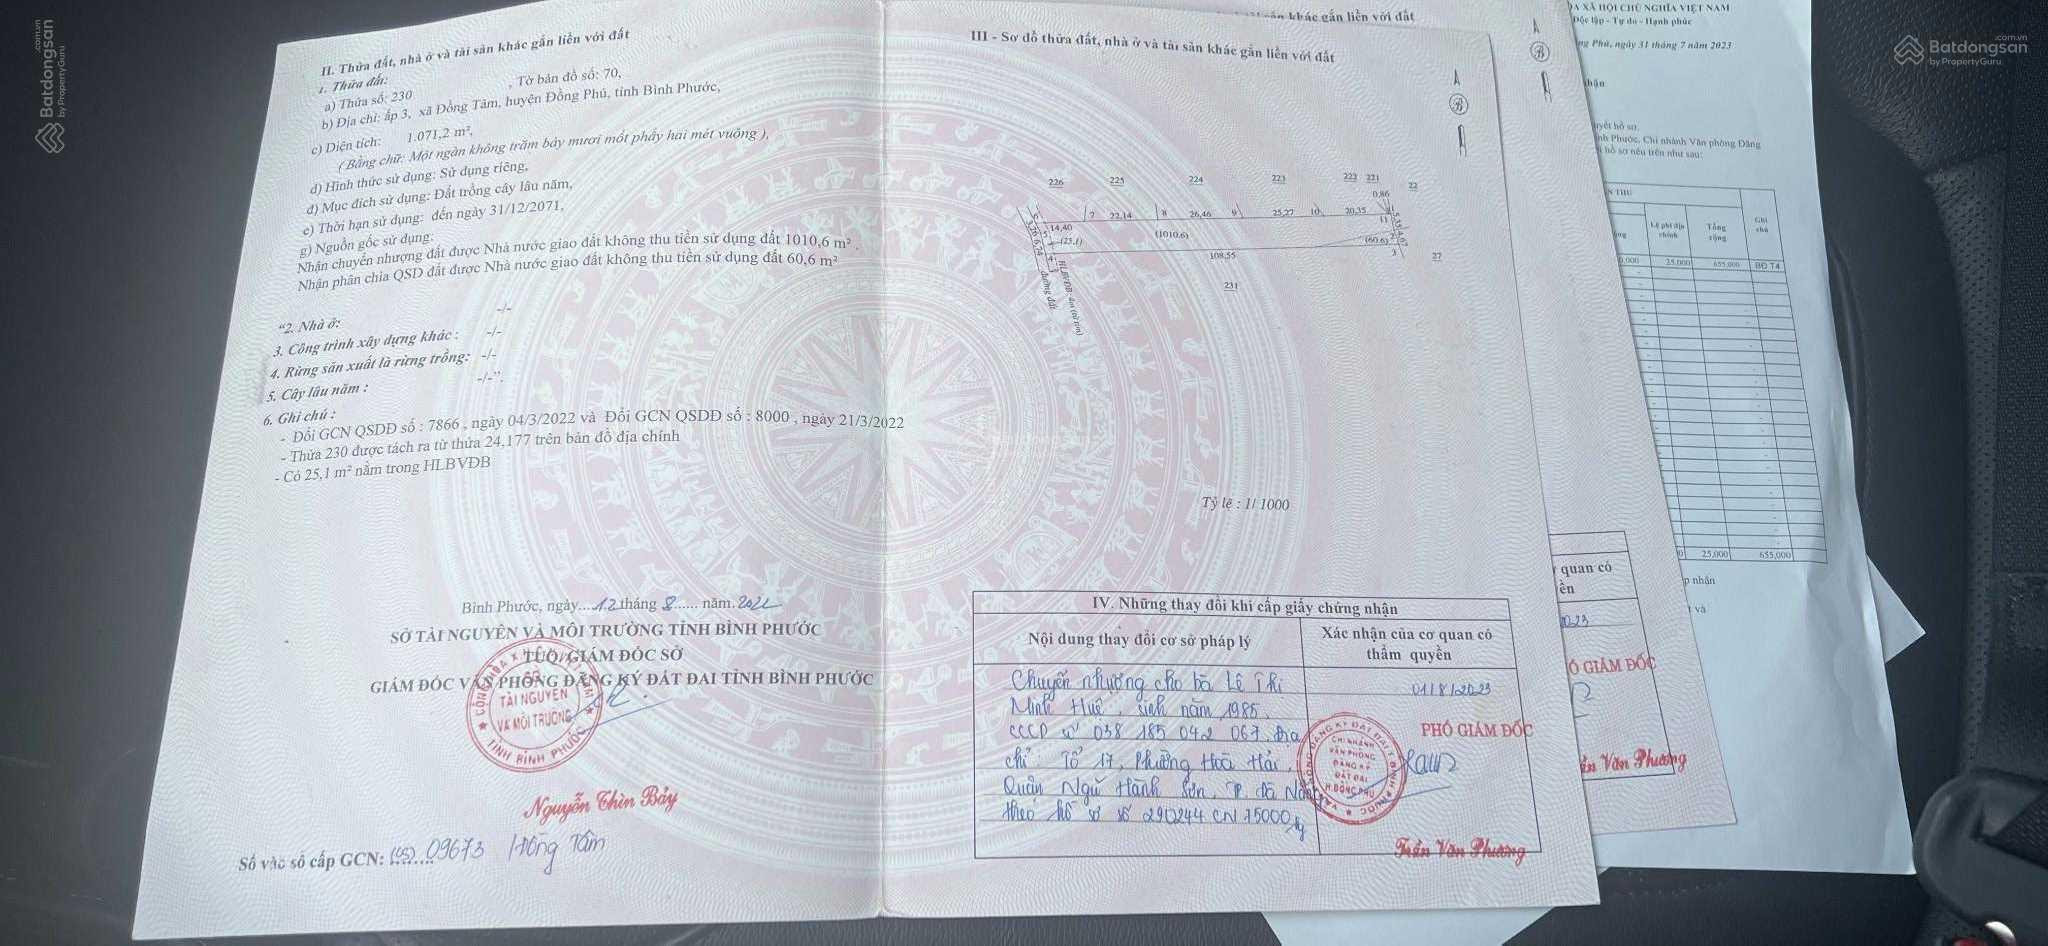 II. Thửa đất, nhà ở và tài sản khác gắn liền với đất
1. Thửa đất:
a) Thửa số: 230 , Tờ bản đồ số: 70,
b) Địa chỉ: ấp 3, xã Đồng Tâm, huyện Đồng Phú, tỉnh Bình Phước,
c) Diện tích: 1.071,2 m²,
( Bằng chữ: Một ngàn không trăm bảy mươi mốt phẩy hai mét vuông ),
d) Hình thức sử dụng: Sử dụng riêng,
đ) Mục đích sử dụng: Đất trồng cây lâu năm,
e) Thời hạn sử dụng: đến ngày 31/12/2071,
g) Nguồn gốc sử dụng:
Nhận chuyển nhượng đất được Nhà nước giao đất không thu tiền sử dụng đất 1010,6 m² .
Nhận phân chia QSD đất được Nhà nước giao đất không thu tiền sử dụng đất 60,6 m²
“2. Nhà ở: -/-
3. Công trình xây dựng khác : -/-
4. Rừng sản xuất là rừng trồng: -/-
5. Cây lâu năm : -/-”.
6. Ghi chú :
- Đổi GCN QSDĐ số : 7866 , ngày 04/3/2022 và Đổi GCN QSDĐ số : 8000 , ngày 21/3/2022
- Thửa 230 được tách ra từ thửa 24,177 trên bản đồ địa chính
- Có 25,1 m² nằm trong HLBVĐB
Bình Phước, ngày....12 tháng 8...... năm.2022
SỞ TÀI NGUYÊN VÀ MÔI TRƯỜNG TỈNH BÌNH PHƯỚC
TUQ. GIÁM ĐỐC SỞ
GIÁM ĐỐC VĂN PHÒNG ĐĂNG KÝ ĐẤT ĐAI TỈNH BÌNH PHƯỚC
TÀI NGUYÊN
VÀ MÔI TRƯỜNG
TỈNH BÌNH PHƯỚC
Nguyễn Thìn Bảy
Số vào sổ cấp GCN: (CS) 09673 Hồng Tâm
III - Sơ đồ thửa đất, nhà ở và tài sản khác gắn liền với đất
B
226 225 224 223 222 221 22
0,86
7 22,14 8 26,46 9 25,27 10 20,35 11
14,40
(25,1) (1010,6) (60,6)
3,26 6,24
108,55
27
231
đường đất
HLBVĐB
Tỷ lệ : 1/ 1000
IV. Những thay đổi khi cấp giấy chứng nhận
Nội dung thay đổi cơ sở pháp lý
Xác nhận của cơ quan có thẩm quyền
Chuyển nhượng cho bà Lê Thị
Minh Huê, sinh năm 1985,
CCCD số 038 185 042 067. Địa
chỉ: Tổ 17, Phường Hoà Hải,
Quận Ngũ Hành Sơn, TP. Đà Nẵng
theo hồ sơ số 290244 CN 15000
01/8/2023
PHÓ GIÁM ĐỐC
CHI NHÁNH
VĂN PHÒNG
ĐĂNG KÝ
ĐẤT ĐAI
H.ĐỒNG PHÚ
Trần Văn Phương
khác gắn liền với đất
B
quan có
ền
Ó GIÁM ĐỐC
ần Văn Phương
A XÃ HỘI CHỦ NGHĨA VIỆT NAM
Độc lập - Tự do - Hạnh phúc
ng Phú, ngày 31 tháng 7 năm 2023
nhận
yết hồ sơ.
nh Phước, Chi nhánh Văn phòng Đăng
hồ sơ nêu trên như sau:
N THU
Lệ phí địa chính
Tổng cộng
Ghi chú
0,000 25,000 655,000 BĐ T4
0 25,000 655,000
p nhận
và
Batdongsan.com.vn
by PropertyGuru
Batdongsan.com.vn
by PropertyGuru